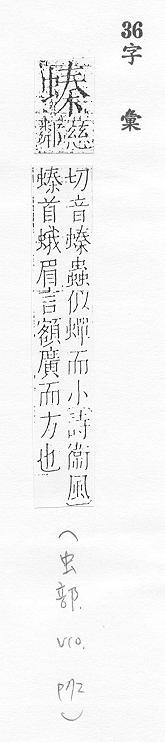 36字 彙
螓
慈
鄰
切音螓蟲似蟬而小詩衛風
螓首蛾眉言額廣而方也
(虫部. V10. P72)